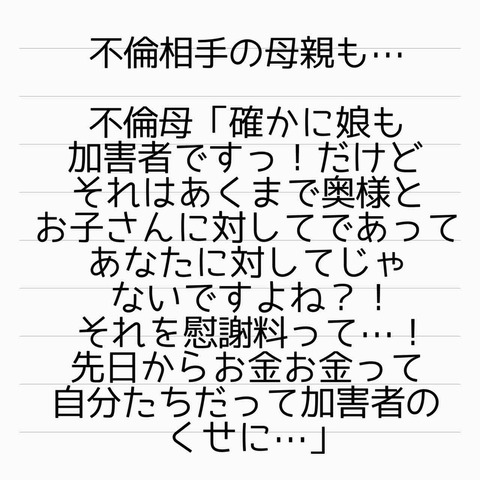 不倫相手の母親も…
不倫母「確かに娘も
加害者ですっ！だけど
それはあくまで奥様と
お子さんに対してであって
あなたに対してじゃ
ないですよね？！
それを慰謝料って…！
先日からお金お金って
自分たちだって加害者の
くせに…」